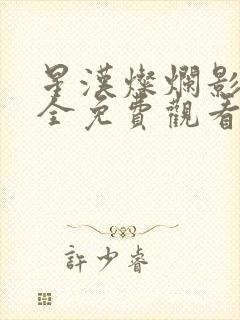 星漢燦爛影
全免費觀看
許少睿